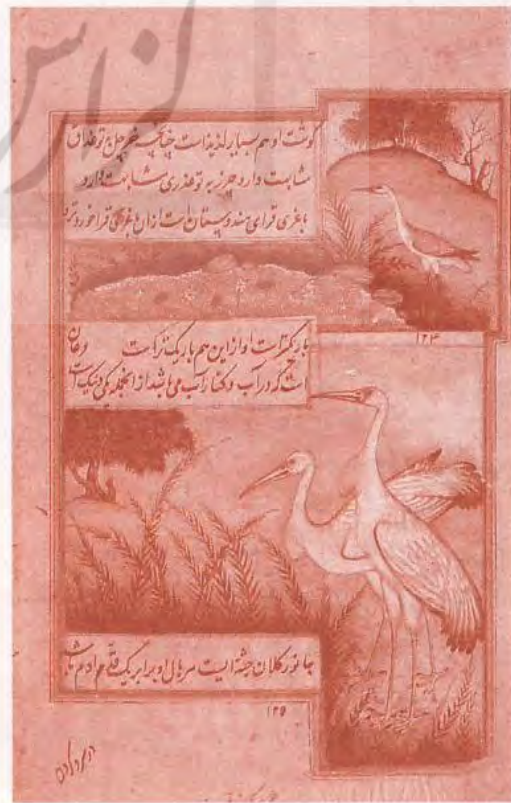 گوشت او هم بسیار لذیذ است چنانچه خرچل به توغداق
مشابهت دارد چرز به توغدری مشابهت دارد
باغری قرای هندوستان است از ان باغری قرا خورد تر و
باریکتر است اواز این هم باریک تر است و جان
۱۲۴
است که در آب و کنار آب می باشد از انجمله یکی دنیک است
جانور کلان جثه ایست هر بال او برابر یک قد آدم باشد
۱۲۵